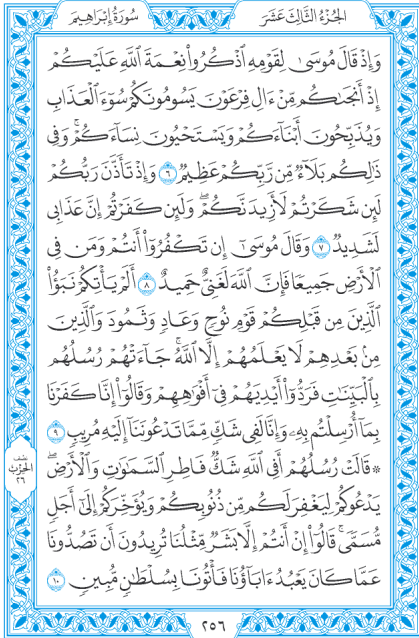 سُورَةُ إِبْرَاهِيمَ
الجُزْءُ الثَّالِثَ عَشَرَ
وَإِذْ قَالَ مُوسَىٰ لِقَوْمِهِ ٱذْكُرُوا۟ نِعْمَةَ ٱللَّهِ عَلَيْكُمْ
إِذْ أَنجَىٰكُم مِّنْ ءَالِ فِرْعَوْنَ يَسُومُونَكُمْ سُوٓءَ ٱلْعَذَابِ
وَيُذَبِّحُونَ أَبْنَآءَكُمْ وَيَسْتَحْيُونَ نِسَآءَكُمْ ۚ وَفِى
ذَٰلِكُم بَلَآءٌ مِّن رَّبِّكُمْ عَظِيمٌ ٦ وَإِذْ تَأَذَّنَ رَبُّكُمْ
لَئِن شَكَرْتُمْ لَأَزِيدَنَّكُمْ ۖ وَلَئِن كَفَرْتُمْ إِنَّ عَذَابِى
لَشَدِيدٌ ٧ وَقَالَ مُوسَىٰٓ إِن تَكْفُرُوٓا۟ أَنتُمْ وَمَن فِى
ٱلْأَرْضِ جَمِيعًا فَإِنَّ ٱللَّهَ لَغَنِىٌّ حَمِيدٌ ٨ أَلَمْ يَأْتِكُمْ نَبَؤُا۟
ٱلَّذِينَ مِن قَبْلِكُمْ قَوْمِ نُوحٍ وَعَادٍ وَثَمُودَ وَٱلَّذِينَ
مِنۢ بَعْدِهِمْ لَا يَعْلَمُهُمْ إِلَّا ٱللَّهُ ۚ جَآءَتْهُمْ رُسُلُهُم
بِٱلْبَيِّنَٰتِ فَرَدُّوٓا۟ أَيْدِيَهُمْ فِىٓ أَفْوَٰهِهِمْ وَقَالُوٓا۟ إِنَّا كَفَرْنَا
بِمَآ أُرْسِلْتُم بِهِۦ وَإِنَّا لَفِى شَكٍّ مِّمَّا تَدْعُونَنَآ إِلَيْهِ مُرِيبٍ ٩
۞ قَالَتْ رُسُلُهُمْ أَفِى ٱللَّهِ شَكٌّ فَاطِرِ ٱلسَّمَٰوَٰتِ وَٱلْأَرْضِ ۖ
يَدْعُوكُمْ لِيَغْفِرَ لَكُم مِّن ذُنُوبِكُمْ وَيُؤَخِّرَكُمْ إِلَىٰٓ أَجَلٍ
مُّسَمًّى ۚ قَالُوٓا۟ إِنْ أَنتُمْ إِلَّا بَشَرٌ مِّثْلُنَا تُرِيدُونَ أَن تَصُدُّونَا
عَمَّا كَانَ يَعْبُدُ ءَابَآؤُنَا فَأْتُونَا بِسُلْطَٰنٍ مُّبِينٍ ١٠
نصف
الحزب
٢٦
٢٥٦